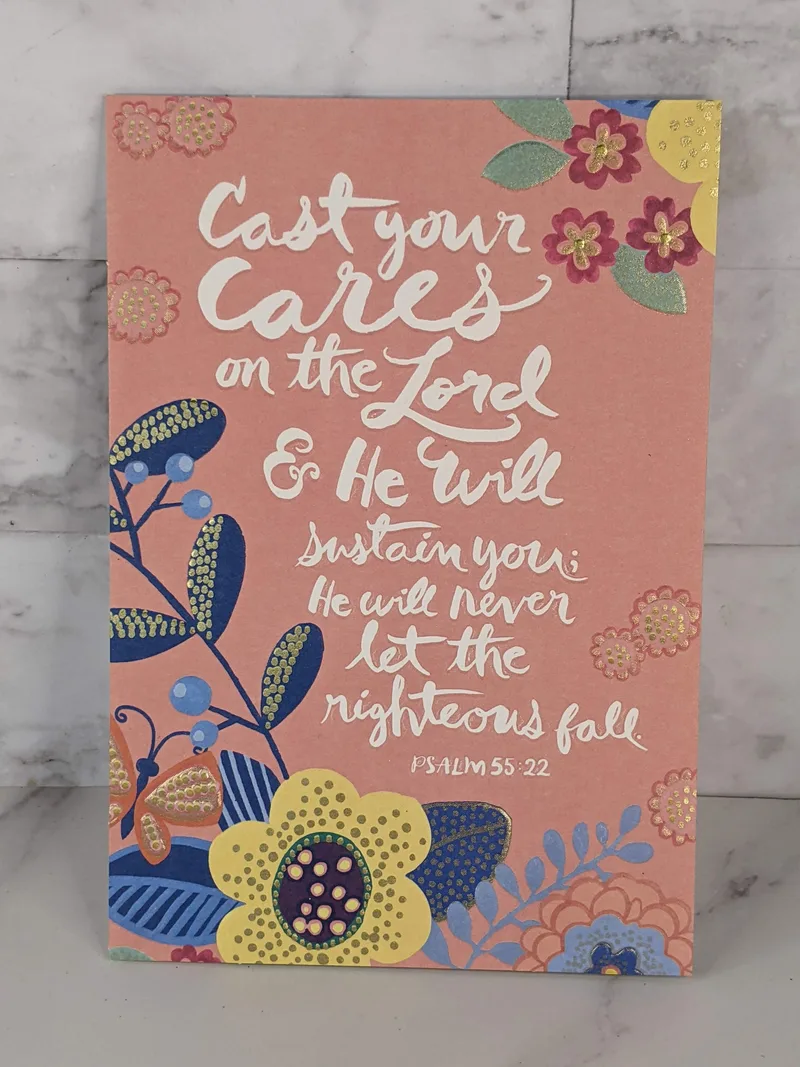 Cast your
Cares
on the Lord
& He Will
sustain you;
He will never
let the
righteous fall.
PSALM 55:22